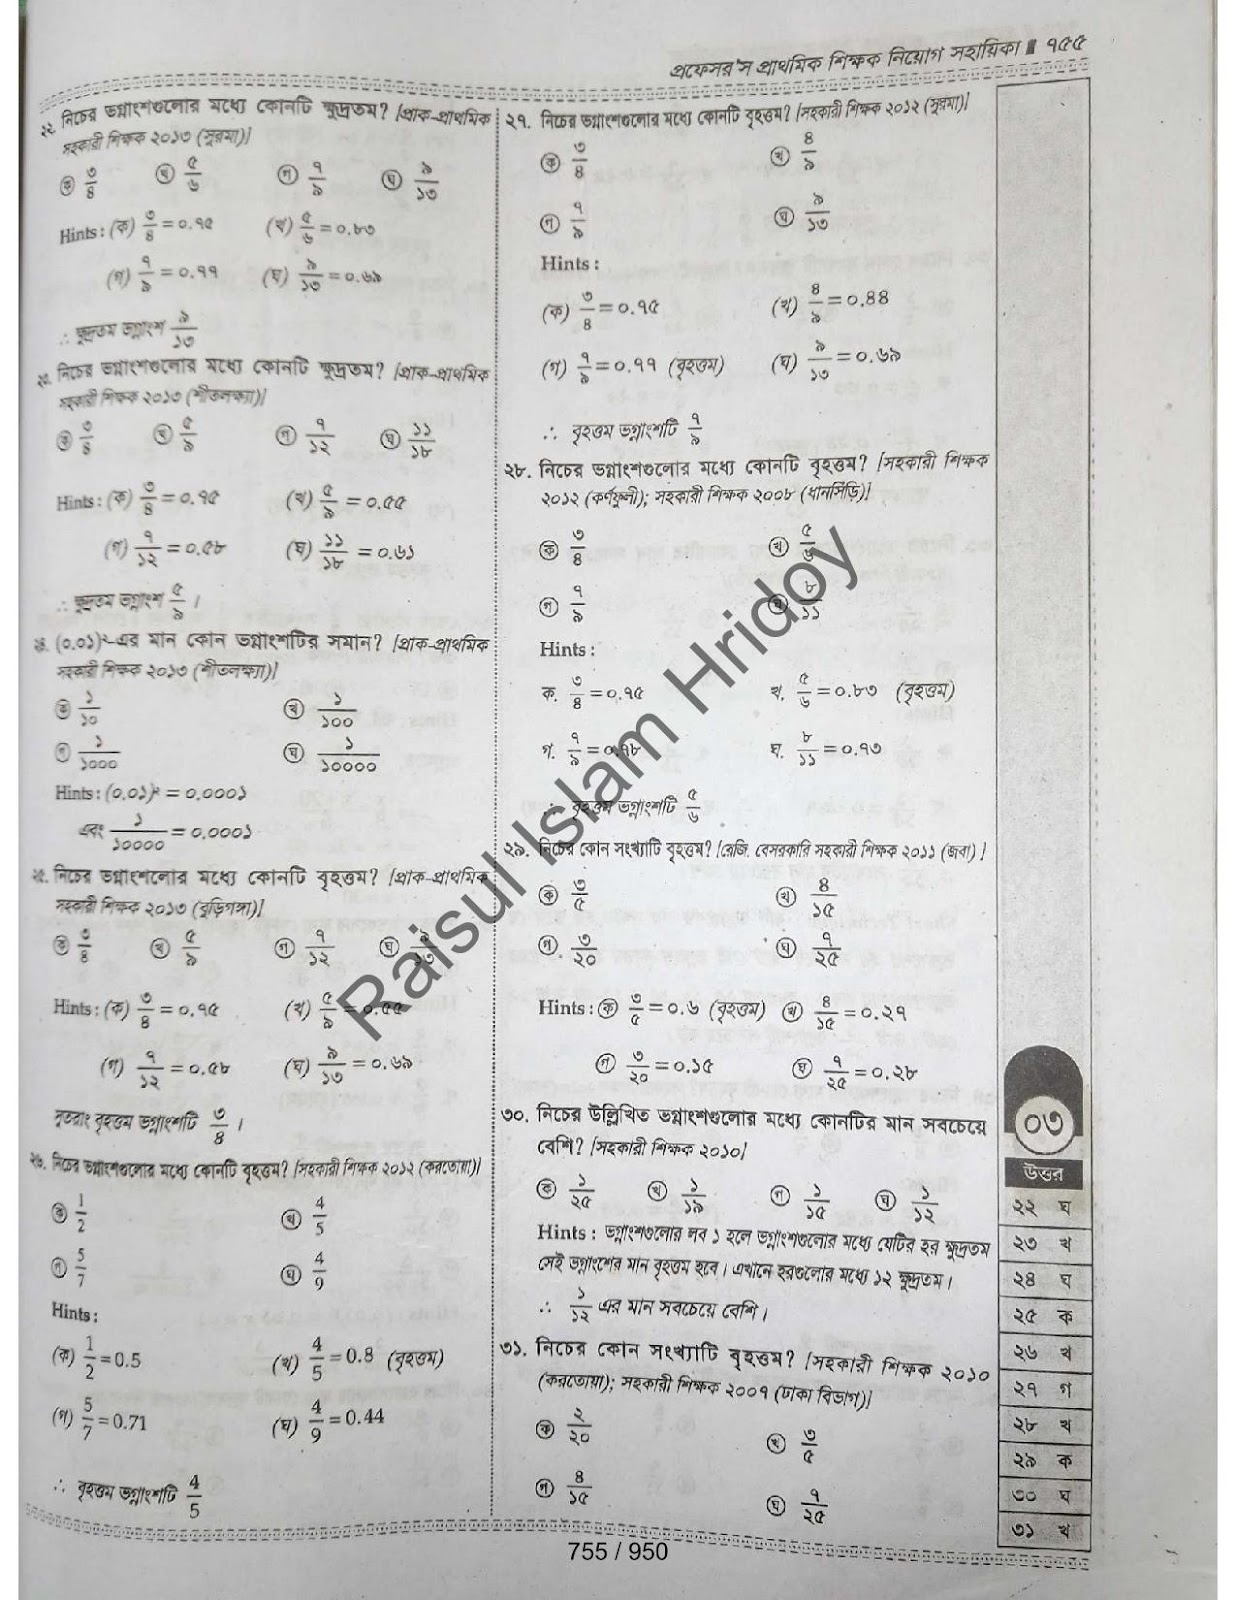 প্রফেসর'স প্রাথমিক শিক্ষক নিয়োগ সহায়িকা ▮ ৭৫৫
২২ নিচের ভগ্নাংশগুলোর মধ্যে কোনটি ক্ষুদ্রতম? [প্রাক-প্রাথমিক
সহকারী শিক্ষক ২০১৩ (সুরমা)]
ক ৩/৪ খ ৫/৬ গ ৭/৯ ঘ ৯/১৩
Hints : (ক) ৩/৪ = ০.৭৫ (খ) ৫/৬ = ০.৮৩
(গ) ৭/৯ = ০.৭৭ (ঘ) ৯/১৩ = ০.৬৯
∴ ক্ষুদ্রতম ভগ্নাংশ ৯/১৩
২৩. নিচের ভগ্নাংশগুলোর মধ্যে কোনটি ক্ষুদ্রতম? [প্রাক-প্রাথমিক
সহকারী শিক্ষক ২০১৩ (শীতলক্ষ্যা)]
ক ৩/৪ খ ৫/৯ গ ৭/১২ ঘ ১১/১৮
Hints : (ক) ৩/৪ = ০.৭৫ (খ) ৫/৯ = ০.৫৫
(গ) ৭/১২ = ০.৫৮ (ঘ) ১১/১৮ = ০.৬১
∴ ক্ষুদ্রতম ভগ্নাংশ ৫/৯ ।
২৪. (০.০১)²-এর মান কোন ভগ্নাংশটির সমান? [প্রাক-প্রাথমিক
সহকারী শিক্ষক ২০১৩ (শীতলক্ষ্যা)]
ক ১/১০ খ ১/১০০
গ ১/১০০০ ঘ ১/১০০০০
Hints : (০.০১)² = ০.০০০১
এবং ১/১০০০০ = ০.০০০১
২৫. নিচের ভগ্নাংশলোর মধ্যে কোনটি বৃহত্তম? [প্রাক-প্রাথমিক
সহকারী শিক্ষক ২০১৩ (বুড়িগঙ্গা)]
ক ৩/৪ খ ৫/৯ গ ৭/১২ ঘ ৯/১৩
Hints : (ক) ৩/৪ = ০.৭৫ (খ) ৫/৯ = ০.৫৫
(গ) ৭/১২ = ০.৫৮ (ঘ) ৯/১৩ = ০.৬৯
সুতরাং বৃহত্তম ভগ্নাংশটি ৩/৪ ।
২৬. নিচের ভগ্নাংশগুলোর মধ্যে কোনটি বৃহত্তম? [সহকারী শিক্ষক ২০১২ (করতোয়া)]
ক 1/2 খ 4/5
গ 5/7 ঘ 4/9
Hints :
(ক) 1/2 = 0.5 (খ) 4/5 = 0.8 (বৃহত্তম)
(গ) 5/7 = 0.71 (ঘ) 4/9 = 0.44
∴ বৃহত্তম ভগ্নাংশটি 4/5
২৭. নিচের ভগ্নাংশগুলোর মধ্যে কোনটি বৃহত্তম? [সহকারী শিক্ষক ২০১২ (সুরমা)]
ক ৩/৪ খ ৪/৯
গ ৭/৯ ঘ ৯/১৩
Hints :
(ক) ৩/৪ = ০.৭৫ (খ) ৪/৯ = ০.৪৪
(গ) ৭/৯ = ০.৭৭ (বৃহত্তম) (ঘ) ৯/১৩ = ০.৬৯
∴ বৃহত্তম ভগ্নাংশটি ৭/৯
২৮. নিচের ভগ্নাংশগুলোর মধ্যে কোনটি বৃহত্তম? [সহকারী শিক্ষক
২০১২ (কর্ণফুলী); সহকারী শিক্ষক ২০০৮ (ধানসিঁড়ি)]
ক ৩/৪ খ ৫/৬
গ ৭/৯ ঘ ৮/১১
Hints :
ক. ৩/৪ = ০.৭৫ খ. ৫/৬ = ০.৮৩ (বৃহত্তম)
গ. ৭/৯ = ০.৭৮ ঘ. ৮/১১ = ০.৭৩
∴ বৃহত্তম ভগ্নাংশটি ৫/৬
২৯. নিচের কোন সংখ্যাটি বৃহত্তম? [রেজি. বেসরকারি সহকারী শিক্ষক ২০১১ (জবা)]
ক ৩/৫ খ ৪/১৫
গ. ৩/২০ ঘ ৭/২৫
Hints : ক ৩/৫ = ০.৬ (বৃহত্তম) খ ৪/১৫ = ০.২৭
গ ৩/২০ = ০.১৫ ঘ ৭/২৫ = ০.২৮
৩০. নিচের উল্লিখিত ভগ্নাংশগুলোর মধ্যে কোনটির মান সবচেয়ে
বেশি? [সহকারী শিক্ষক ২০১০]
ক ১/২৫ খ ১/১৯ গ ১/১৫ ঘ ১/১২
Hints : ভগ্নাংশগুলোর লব ১ হলে ভগ্নাংশগুলোর মধ্যে যেটির হর ক্ষুদ্রতম
সেই ভগ্নাংশের মান বৃহত্তম হবে। এখানে হরগুলোর মধ্যে ১২ ক্ষুদ্রতম।
∴ ১/১২ এর মান সবচেয়ে বেশি।
৩১. নিচের কোন সংখ্যাটি বৃহত্তম? [সহকারী শিক্ষক ২০১০
(করতোয়া); সহকারী শিক্ষক ২০০৭ (ঢাকা বিভাগ)]
ক ২/২০ খ ৩/৫
গ ৪/১৫ ঘ ৭/২৫
০৩
উত্তর
২২ ঘ
২৩ খ
২৪ ঘ
২৫ ক
২৬ খ
২৭ গ
২৮ খ
২৯ ক
৩০ ঘ
৩১ খ
Raisul Islam Hridoy
755 / 950